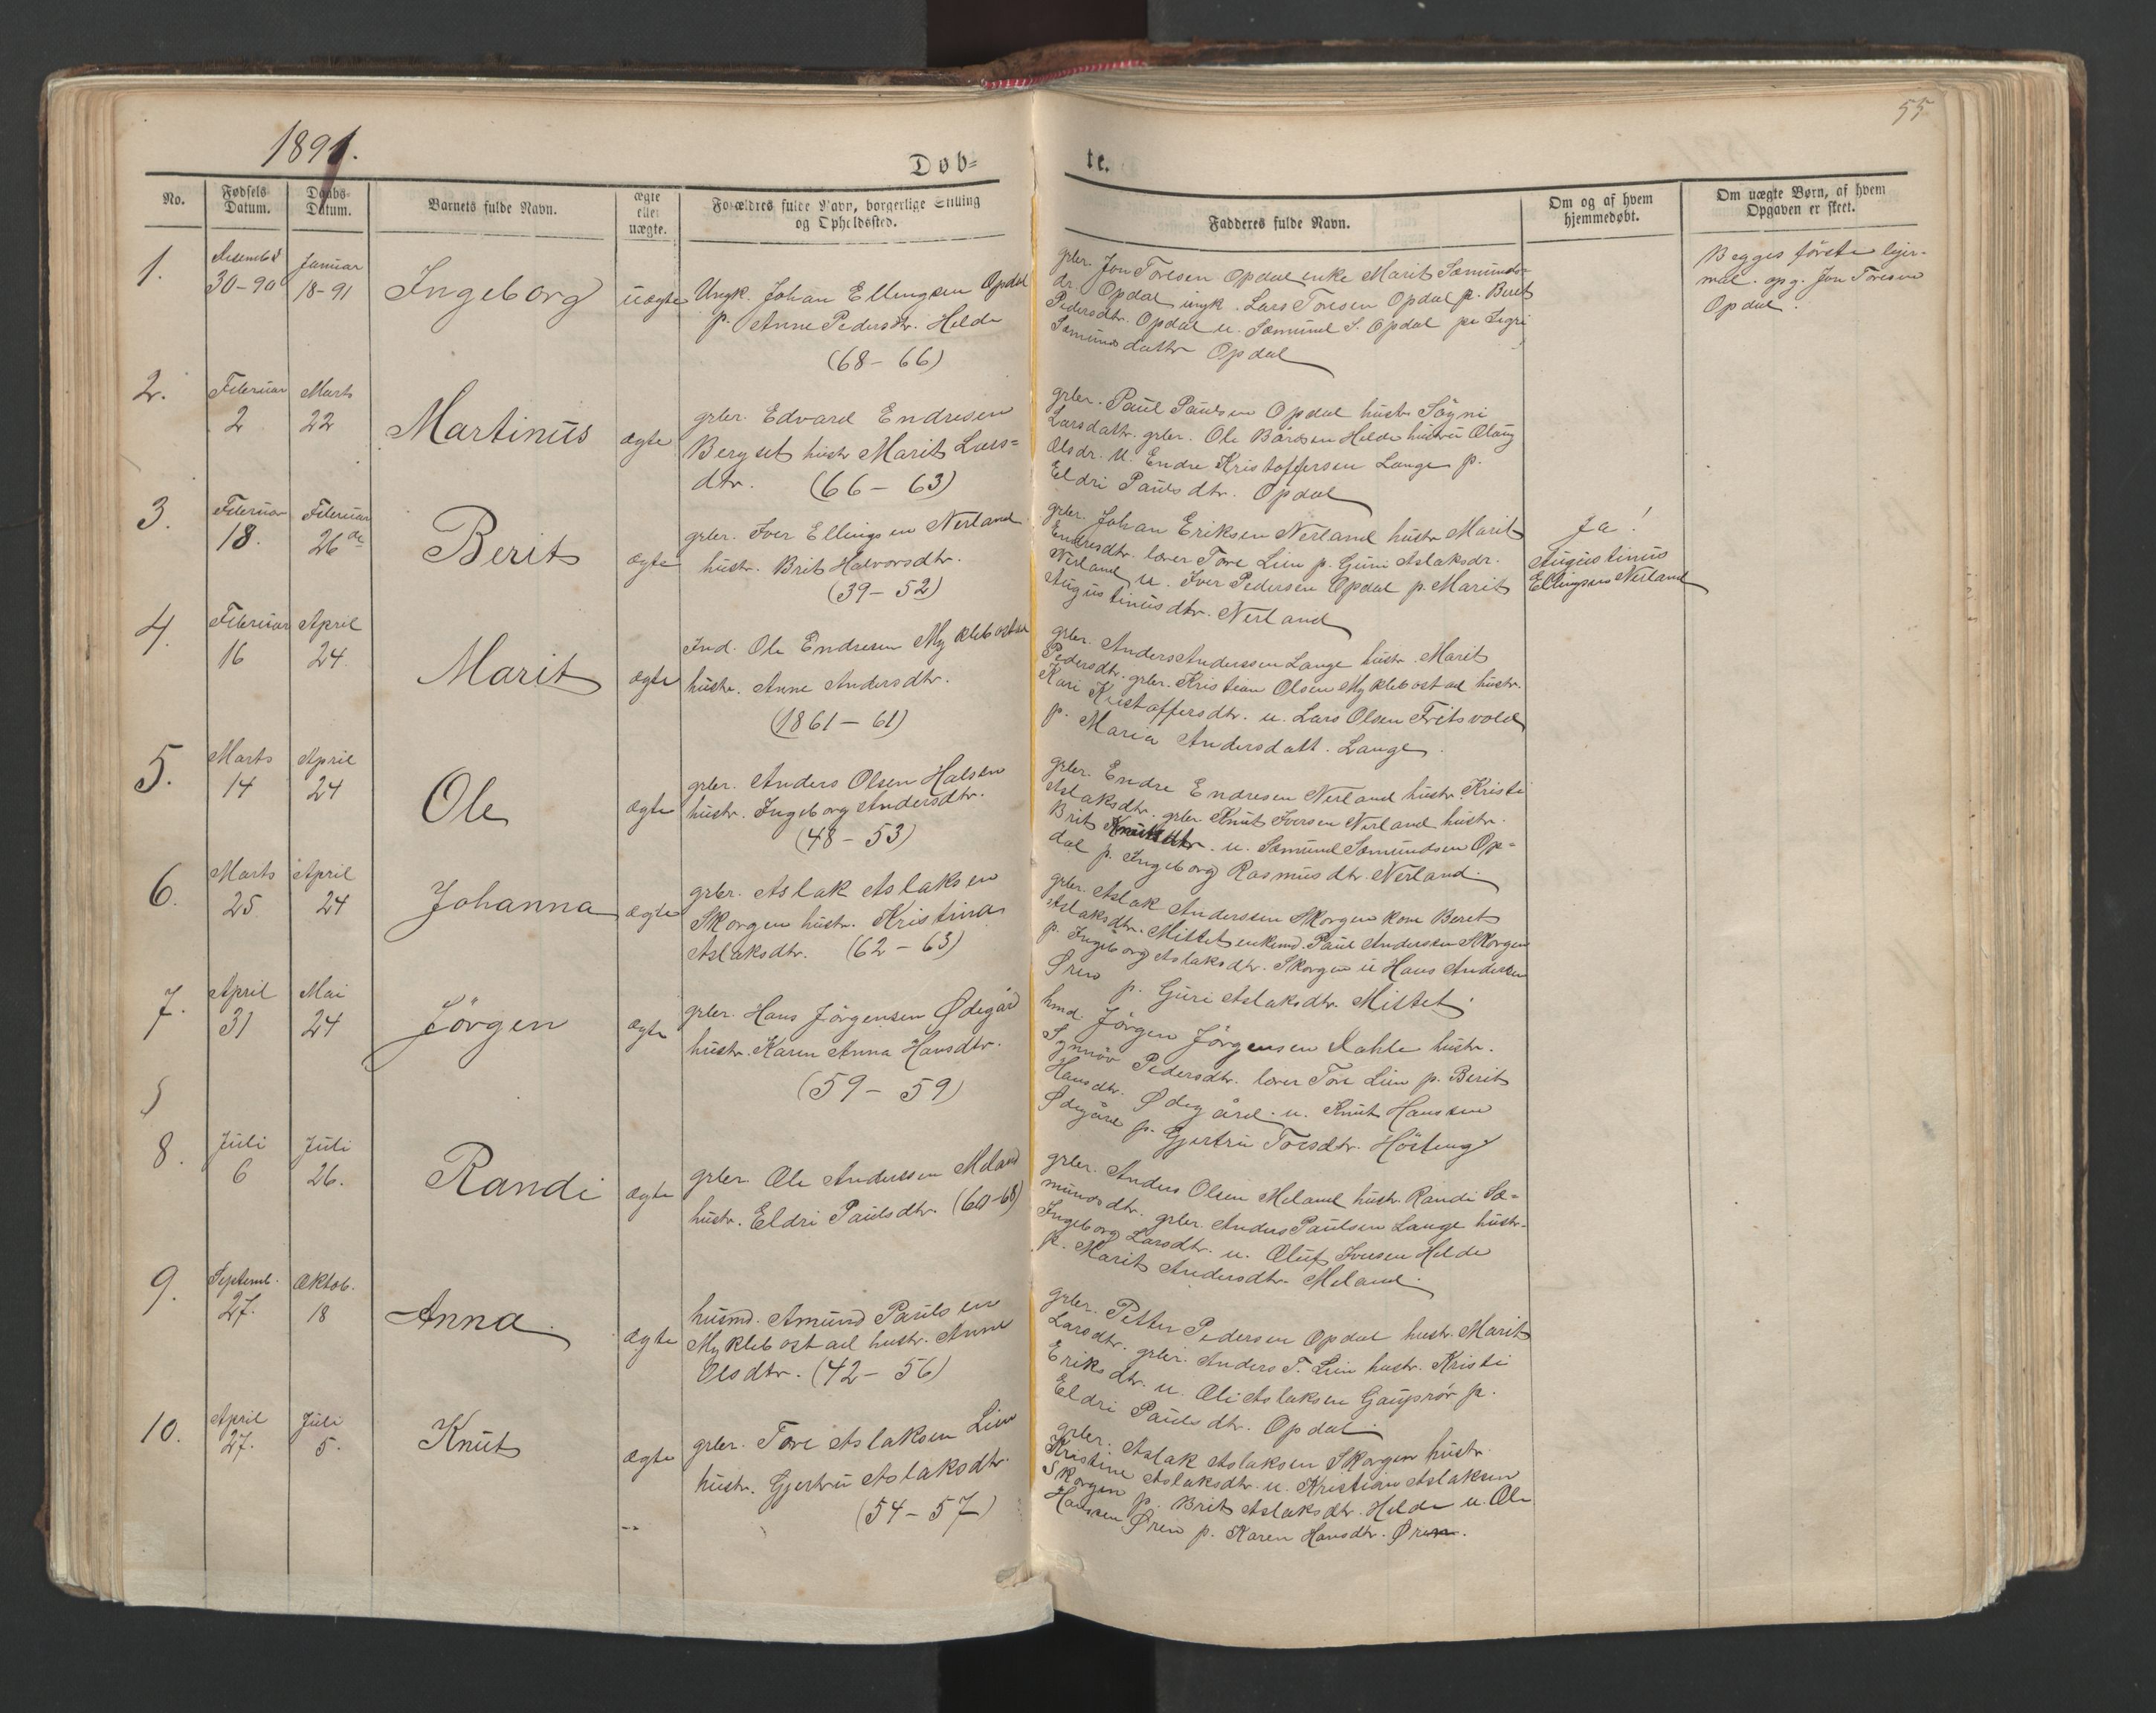 55
1891.
Døb=
te.
No.
Fødsels Datum.
Daabs Datum.
Barnets fulde Navn.
ægte eller uægte.
Forældres fulde Navn, borgerlige Stilling og Opholdssted.
Fadderes fulde Navn.
Om og af hvem hjemmedøbt.
Om uægte Børn, af hvem Opgaven er skeet.
1.
30-90
Januar
18-91
Ingeborg
uægte
Ungk. Johan Ellingsen Opdal
p. Anne Pedersdtr. Helde
(68-66)
grbr. Jon Toresen Opdal enke Marit Sæmunds=
dr. Opdal ungk. Lars Toresen Opdal p. Berit
Pedersdtr. Opdal u. Sæmund S. Opdal pe Segri
Sæmundsdattr Opdal
Begges første lejer-
mål. opg. Jon Toresen
Opdal.
2.
Februar
2
Marts
22
Martinus
ægte
grbr. Edvard Endresen
Bergset hustr Marit Lars=
dtr. (66-63)
grbr. Paul Paulsen Opdal hustr Søgni
Larsdattr. grbr. Ole Bårdsen Helde hustru Olaug
Olsdr. U. Endre Kristoffersen Lange p.
Eldri Paulsdtr. Opdal
3.
Februar
18.
Februar
26de
Berit
ægte
grbr. Iver Ellingsen Nerland
hustr. Brit Halvorsdtr.
(39-52)
grbr. Johan Eriksen Nerland hustr Marit
Endresdtr. lærer Tore Lien p. Guni Aslaksdr.
Nerland u. Iver Pedersen Opdal p. Marit
Augustinusdtr. Nerland
Ja!
Augustinus
Ellingsen Nerland
4.
Februar
16
April
24
Marit
ægte
Ind. Ole Endresen Myklebostad
hustr. Anne Andersdtr.
(1861-61)
grbr. Anders Anderssen Lange hustr. Marit
Pedersdtr. grbr. Kristian Olsen Myklebostad hustr.
Kari Kristoffersdtr. u. Lars Olsen Fritsvold
p. Maria Andersdatt. Lange.
5.
Marts
14
April
24
Ole
ægte
grbr. Anders Olsen Halsen
hustr. Ingeborg Andersdtr.
(48-53)
grbr. Endre Endresen Nerland hustr Kristi
Aslaksdtr. grbr Knut Iversen Nerland hustr.
Brit Knutsdtr. u. Sæmund Sæmundsen Op=
dal p. Ingeborg Rasmusdtr. Nerland.
6.
Marts
25
April
24
Johanna
ægte
grbr. Aslak Aslaksen
Skorgen hustr. Kristina
Aslaksdtr. (62-63)
grbr. Aslak Anderssen Skorgen kone Beret
Aslaksdtr. Mittet enkemd. Paul Andersen Skorgen
p. Ingeborg Aslaksdtr. Skorgen u Hans Andersen
Øren p. Guri Aslaksdtr. Mittet.
7.
April
31
Mai
24
Jörgen
ægte
grbr. Hans Jörgensen Ødegård
hustr. Karen Anna Hansdtr.
(59-59)
hmd. Jörgen Jörgensen Dahle hustr.
Synnöv Pedersdtr. lærer Tore Lien p. Berit
Hansdtr. Ødegård. u. Knut Hanssen
Ødegård p. Gjertru Toresdtr.
8.
Juli
6
Juli
26.
Randi
ægte
grbr. Ole Anderssen Meland
hustr. Eldri Paulsdtr. (60-68)
grbr. Anders Olsen Meland hustr. Randi Sæ=
mundsdtr. grbr. Anders Paulsen Lange hustr.
Ingeborg Larsdtr. u. Oluf Iversen Helde
p. Marit Andersdtr. Meland.
9.
Septemb.
27.
Oktob.
18
Anna
ægte
husmd. Amund Paulsen
Myklebostad hustr. Anne
Olsdtr. (42-56)
grbr. Petter Pedersen Opdal hustr. Marit
Larsdtr. grbr. Anders T. Lien hustr. Kristi
Eriksdtr. u. Ole Aslaksen Gauprör p.
Eldri Paulsdtr. Opdal.
10.
April
27.
Juli
5.
Knut
ægte
grbr. Tore Aslaksen Lien
hustr. Gjertru Aslaksdtr.
(54-57)
grbr. Aslak Aslaksen Skorgen hustr.
Kristine Aslaksdtr. u. Kristian Aslaksen
Skorgen p. Brit Aslaksdtr. Helde u. Ole
Hanssen Øren p. Karen Hansdtr. Øren.